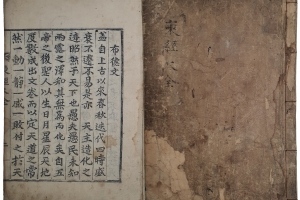 布德文
盖自上古以來春秋迭代四時盛
衰不遷不易是亦 天主造化之
迹昭然于天下也愚夫愚民未知
雨露之澤知其無爲而化矣自五
帝之後聖人以生日月星辰天地
度數成出文卷而以定天道之常
然一動一靜一盛一敗付之於天
東經大全